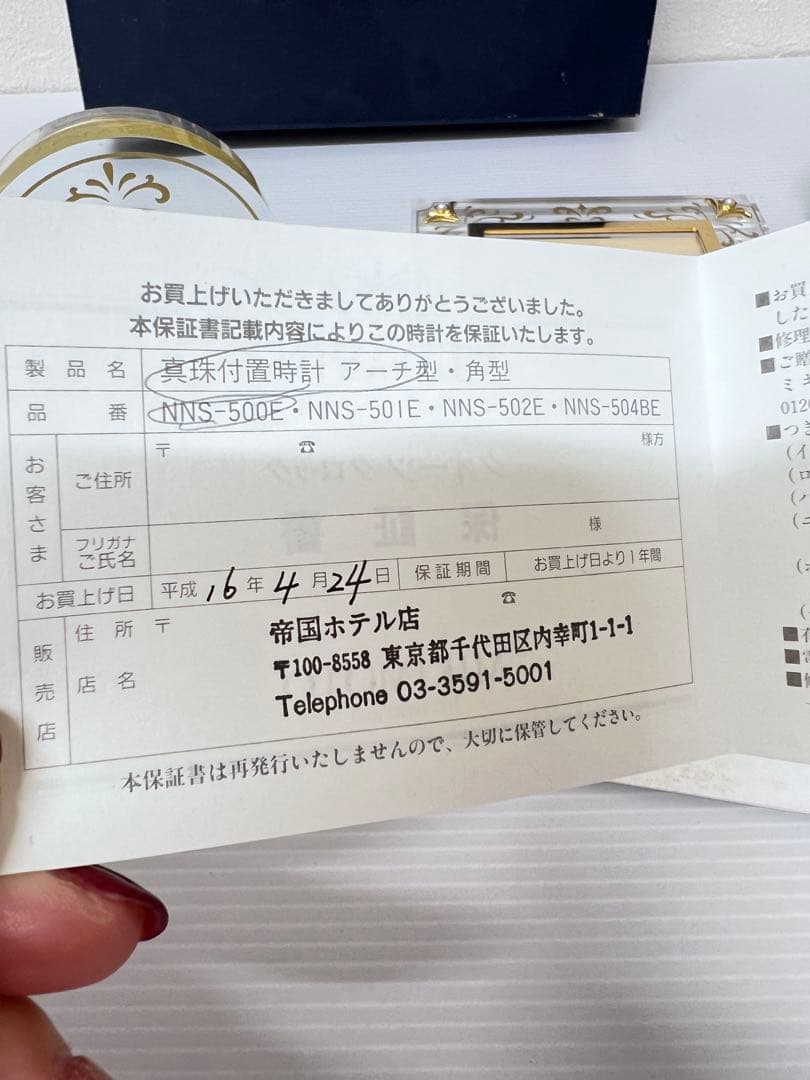 お買上げいただきましてありがとうございました。
本保証書記載内容によりこの時計を保証いたします。
製品名 真珠付置時計 アーチ型・角型
品番 NNS-500E・NNS-501E・NNS-502E・NNS-504BE
お客さま
ご住所 〒 ☎ 様方
フリガナ
ご氏名 様
お買上げ日 平成16年4月24日 保証期間 お買上げ日より1年間
販売店
住所 〒 ☎
店名
帝国ホテル店
〒100-8558 東京都千代田区内幸町1-1-1
Telephone 03-3591-5001
本保証書は再発行いたしませんので、大切に保管してください。
■お買
した
■修理
■ご贈
ミキ
0120
■つき
(イ
(ロ
(ハ